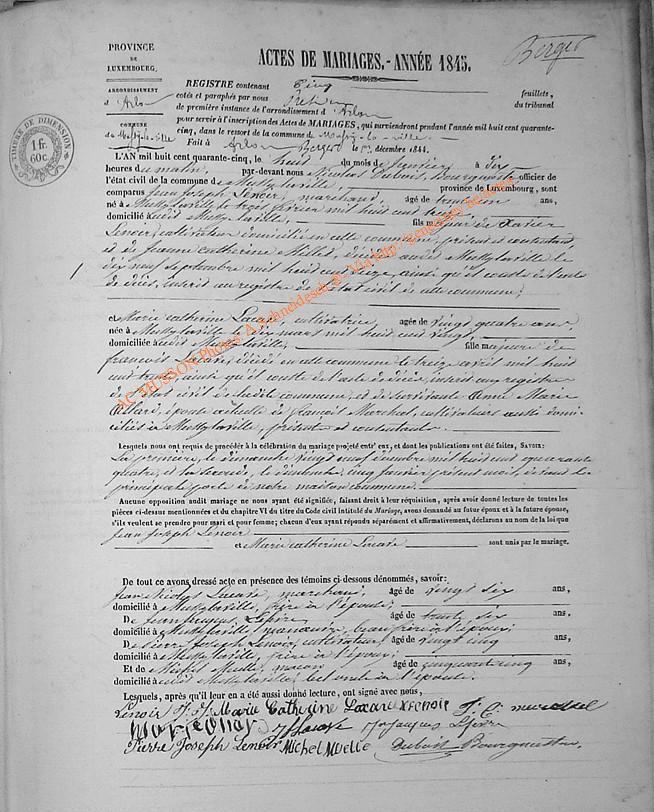 PROVINCE
DE
LUXEMBOURG.
ACTES DE MARIAGES.-ANNÉE 1845.
Berger
ARRONDISSEMENT
d'Arlon
COMMUNE
de Mussy-la-ville
TIMBRE DE DIMENSION
1 fr.
60c.
REGISTRE contenant Cinq feuillets,
cotés et paraphés par nous du tribunal
de première instance de l'arrondissement d'Arlon
pour servir à l'inscription des Actes de MARIAGES, qui surviendront pendant l'année mil huit cent quarante-
cinq, dans le ressort de la commune de Mussy-la-ville
Fait à Arlon le décembre 1844.
L'AN mil huit cent quarante-cinq, le huit du mois de janvier à dix
heures du matin, par-devant nous Nicolas Dubois, Bourgmestre officier de
l'état civil de la commune de Mussylaville, province de Luxembourg, sont
comparus Jean Joseph Lenoir, marchand, âgé de ans,
né à Mussylaville le trois février mil huit cent
domicilié audit Mussylaville, fils majeur de Xavier
Lenoir, cultivateur domicilié en cette commune, présent et consentant,
et de Jeanne Catherine décédée audit Mussylaville le
dix neuf septembre mil huit cent ainsi qu'il conste de l'acte
de décès, inscrit au registre de l'état civil de cette commune;
et Marie Catherine Lacave, cultivatrice, agée de vingt quatre ans,
née à Mussylaville le dix mars mil huit cent vingt,
domiciliée audit Mussylaville, fille majeure de
françois décédé en cette commune le treize avril mil huit
cent ainsi qu'il conste de l'acte de décès, inscrit aux registres
de l'état civil de ladite commune, et de survivante Anne Marie
épouse actuelle de françois Marechal, cultivateurs aussi domi-
ciliés à Mussylaville, présents et consentants.
Lesquels nous ont requis de procéder à la célébration du mariage projeté entr'eux, et dont les publications ont été faites, SAVOIR:
La première, le dimanche vingt neuf décembre mil huit cent quarante
quatre, et la seconde, le dimanche cinq janvier présent mois, devant la
principale porte de notre maison commune.
Aucune opposition audit mariage ne nous ayant été signifiée, faisant droit à leur réquisition, après avoir donné lecture de toutes les
pièces ci-dessus mentionnées et du chapitre VI du titre du Code civil intitulé du Mariage, avons demandé au futur époux et à la future épouse,
s'ils veulent se prendre pour mari et pour femme; chacun d'eux ayant répondu séparément et affirmativement, déclarons au nom de la loi que
Jean Joseph Lenoir
et Marie Catherine Lacave sont unis par le mariage.
De tout ce avons dressé acte en présence des témoins ci-dessous dénommés, savoir:
Jean Nicolas Lacave, marchand, âgé de vingt six ans,
domicilié à Mussylaville, frère de l'épouse;
De Jean Jacques Lefèvre âgé de trente six ans,
domicilié à Mussylaville manoeuvre, beau frère de l'époux;
De Pierre Joseph Lenoir, cultivateur âgé de vingt cinq ans,
domicilié à Mussylaville, frère de l'époux;
Et de Michel Muelle, maçon âgé de cinquante cinq ans,
domicilié à audit Mussylaville, bel oncle de l'épouse.
Lesquels, après qu'il leur en a été aussi donné lecture, ont signé avec nous,
Lenoir J. J. Marie Catherine Lacave X Lenoir
Jn Jacques Lefèvre
Pierre Joseph Lenoir Michel Muelle Dubois Bourgmestre
AC MUSSON Photos A Schneidesch © - Via http://